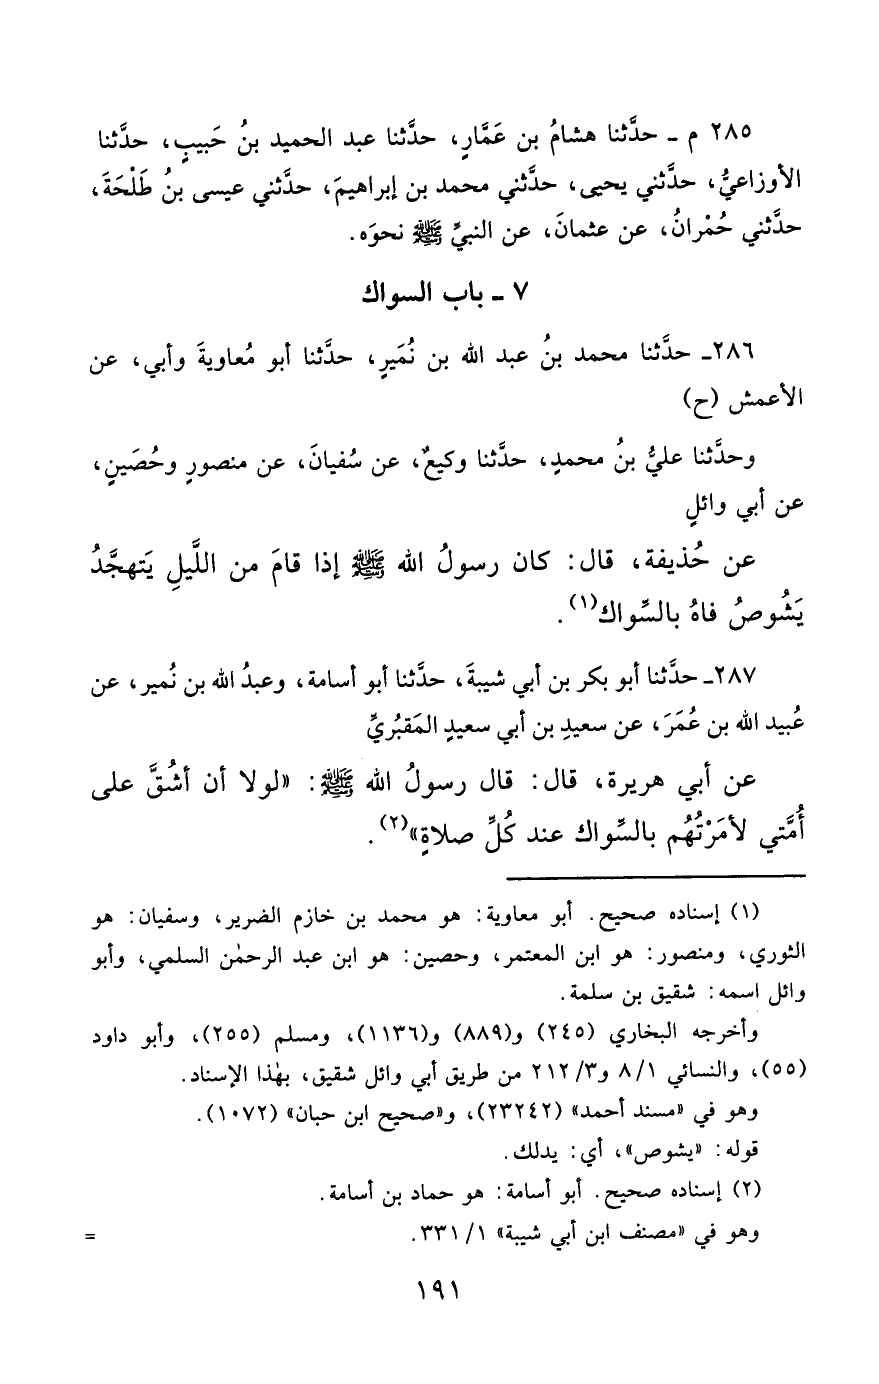 ٢٨٥ م ـ حدَّثنا هشامُ بن عَمَّارٍ، حدَّثنا عبد الحميد بنُ حَبيبٍ، حدَّثنا
الأوزاعيُّ، حدَّثني يحيى، حدَّثني محمد بن إبراهيمَ، حدَّثني عيسى بنُ طَلْحَةَ،
حدَّثني حُمْرانُ، عن عثمانَ، عن النبيِّ ﷺ نحوَه.
٧ ـ باب السواك
٢٨٦ـ حدَّثنا محمد بنُ عبد الله بن نُمَيرٍ، حدَّثنا أبو مُعاويةَ وأبي، عن
الأعمش (ح)
وحدَّثنا عليُّ بنُ محمدٍ، حدَّثنا وكيعٌ، عن سُفيانَ، عن منصورٍ وحُصَينٍ،
عن أبي وائلٍ
عن حُذيفة، قال: كان رسولُ الله ﷺ إذا قامَ من اللَّيلِ يَتهجَّدُ
يَشُوصُ فاهُ بالسِّواك(١).
٢٨٧ـ حدَّثنا أبو بكر بن أبي شيبةَ، حدَّثنا أبو أسامة، وعبدُ الله بن نُمير، عن
عُبيد الله بن عُمَرَ، عن سعيدِ بن أبي سعيدٍ المَقبُريِّ
عن أبي هريرة، قال: قال رسولُ الله ﷺ: «لولا أن أشُقَّ على
أُمَّتي لأمَرْتُهُم بالسِّواك عند كُلِّ صلاةٍ»(٢).
(١) إسناده صحيح. أبو معاوية: هو محمد بن خازم الضرير، وسفيان: هو
الثوري، ومنصور: هو ابن المعتمر، وحصين: هو ابن عبد الرحمٰن السلمي، وأبو
وائل اسمه: شقيق بن سلمة.
وأخرجه البخاري (٢٤٥) و(٨٨٩) و(١١٣٦)، ومسلم (٢٥٥)، وأبو داود
(٥٥)، والنسائي ١/ ٨ و٣/ ٢١٢ من طريق أبي وائل شقيق، بهٰذا الإسناد.
وهو في «مسند أحمد» (٢٣٢٤٢)، و«صحيح ابن حبان» (١٠٧٢).
قوله: «يشوص»، أي: يدلك.
(٢) إسناده صحيح. أبو أسامة: هو حماد بن أسامة.
وهو في «مصنف ابن أبي شيبة» ١/ ٣٣١. =
١٩١